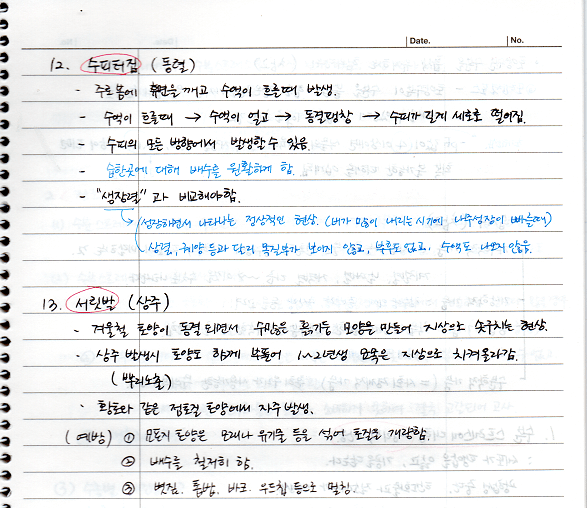 Date. No.
12. 수피터짐 (동렬)
- 주로 봄에 휴면을 깨고 수액이 흐를때 발생.
- 수액이 흐를때 → 수액이 얼고 → 동결팽창 → 수피가 길게 세로로 떨어짐.
- 수피의 모든 방향에서 발생할 수 있음.
- 습한곳에 대해 배수를 원활하게 함.
- "생장렬" 과 비교해야함.
→ (성장하면서 나타나는 정상적인 현상. (비가 많이 내리는 시기에 나무성장이 빠를때)
상렬, 궤양 등과 달리 목질부가 보이지 않고, 부후도 없고, 수액도 나오지 않음.
13. 서릿발 (상주)
- 겨울철 토양이 동결 되면서 수많은 흙기둥 모양을 만들어 지상으로 솟구치는 현상.
- 상주 발생시 토양도 함께 부풀어 1~2년생 묘목은 지상으로 치켜올라감.
(뿌리노출)
- 황토와 같은 점토질 토양에서 자주 발생.
(예방) ① 묘포지 토양은 모래나 유기물 등을 섞어 토질을 개량함.
② 배수를 철저히 함.
③ 볏짚, 톱밥, 바크, 우드칩 등으로 멀칭.